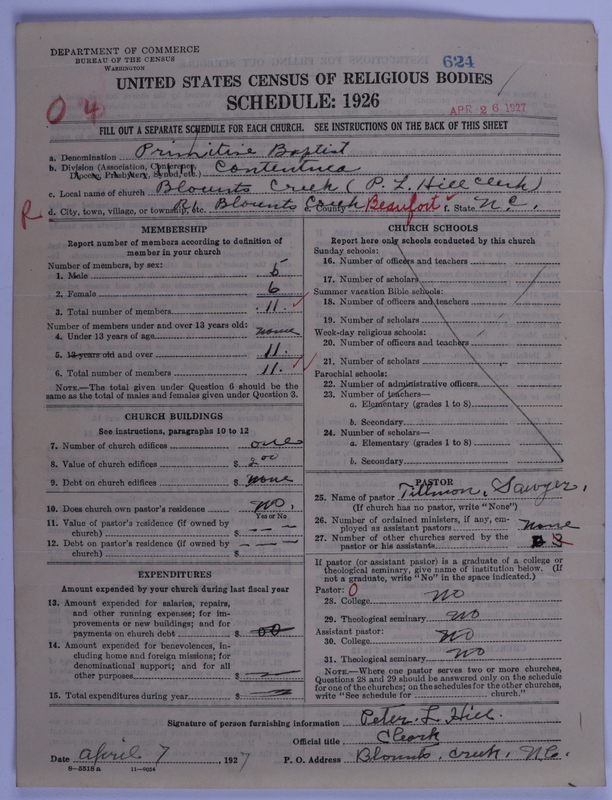 DEPARTMENT OF COMMERCE
BUREAU OF THE CENSUS
WASHINGTON
624
UNITED STATES CENSUS OF RELIGIOUS BODIES
SCHEDULE: 1926
APR 26 1927
O 4
FILL OUT A SEPARATE SCHEDULE FOR EACH CHURCH. SEE INSTRUCTIONS ON THE BACK OF THIS SHEET
a. Denomination Primitive Baptist
b. Division (Association, Conference, Diocese, Presbytery, Synod, etc.) Contentnea
c. Local name of church Blounts Creek (P. L. Hill Clerk)
R d. City, town, village, or township, etc. Blounts Creek e. County Beaufort f. State N.C.
MEMBERSHIP
Report number of members according to definition of member in your church
Number of members, by sex:
1. Male 5
2. Female 6
3. Total number of members 11
Number of members under and over 13 years old:
4. Under 13 years of age none
5. 13 years old and over 11.
6. Total number of members 11.
NOTE.—The total given under Question 6 should be the same as the total of males and females given under Question 3.
CHURCH BUILDINGS
See instructions, paragraphs 10 to 12
7. Number of church edifices one
8. Value of church edifices $ 200
9. Debt on church edifices $ none
10. Does church own pastor's residence No.
Yes or No
11. Value of pastor's residence (if owned by church) $ — — —
12. Debt on pastor's residence (if owned by church) $ — — —
EXPENDITURES
Amount expended by your church during last fiscal year
13. Amount expended for salaries, repairs, and other running expenses; for improvements or new buildings; and for payments on church debt $ 00
14. Amount expended for benevolences, including home and foreign missions; for denominational support; and for all other purposes $
15. Total expenditures during year $
CHURCH SCHOOLS
Report here only schools conducted by this church
Sunday schools:
16. Number of officers and teachers
17. Number of scholars
Summer vacation Bible schools:
18. Number of officers and teachers
19. Number of scholars
Week-day religious schools:
20. Number of officers and teachers
21. Number of scholars
Parochial schools:
22. Number of administrative officers
23. Number of teachers—
a. Elementary (grades 1 to 8)
b. Secondary
24. Number of scholars—
a. Elementary (grades 1 to 8)
b. Secondary
PASTOR
25. Name of pastor Tillmon, Sawyer,
(If church has no pastor, write "None")
26. Number of ordained ministers, if any, employed as assistant pastors none
27. Number of other churches served by the pastor or his assistants
If pastor (or assistant pastor) is a graduate of a college or theological seminary, give name of institution below. (If not a graduate, write "No" in the space indicated.)
Pastor: O
28. College No
29. Theological seminary No
Assistant pastor:
30. College No
31. Theological seminary No
NOTE.—Where one pastor serves two or more churches, Questions 28 and 29 should be answered only on the schedule for one of the churches; on the schedules for the other churches, write "See schedule for church."
Signature of person furnishing information Peter. L. Hill.
Official title Clerk
Date April 7, 1927 P. O. Address Blounts, Creek, N.C.
8—5518 a 11—9054